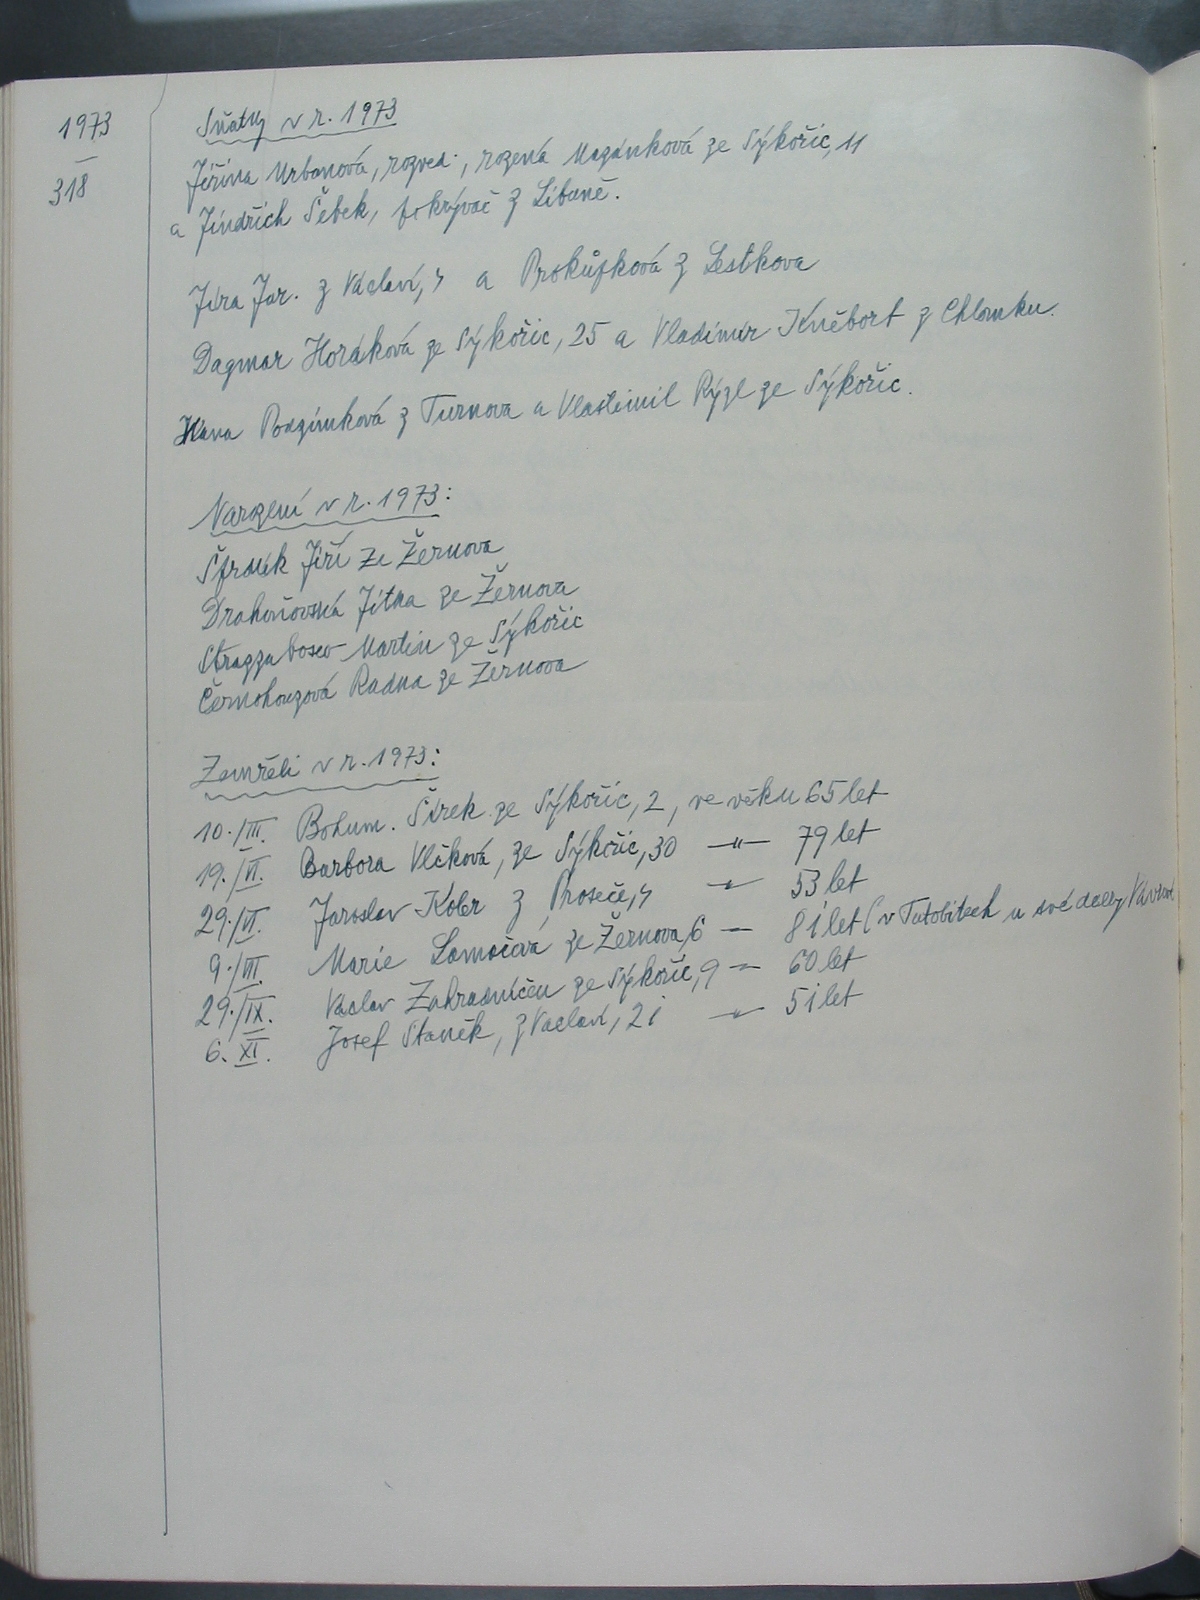 1973
318
Sňatky v r. 1973
Jiřina Urbanová, rozved., rozená Mazánková ze Sýkořic, 11
a Jindřich Šebek, pokrývač z Libaně.
Jíra Jar. z Václaví, a Prokůpková z Lestkova
Dagmar Horáková ze Sýkořic, 25 a Vladimír Kněbort z Chlomku.
Hana Podzimková z Turnova a Vlastimil Rýzl ze Sýkořic.
Narození v r. 1973:
Jiří ze Žernova
Drahoňovská Jitka ze Žernova
Martin ze Sýkořic
Černohouzová Radka ze Žernova
Zemřeli v r. 1973:
10./III. Bohum. Šírek ze Sýkořic, 2, ve věku 65 let
19./VI. Barbora Vlčková, ze Sýkořic, 30 —"— 79 let
29./VI. Jaroslav Kobr z Proseče, —"— 53 let
9./VII. Marie ze Žernova, 6 — 81 let (v Tatobitech u své dcery
29./IX. Václav ze Sýkořic, 9 —"— 60 let
6. XI. Josef Staněk, z Václaví, 21 —"— 51 let